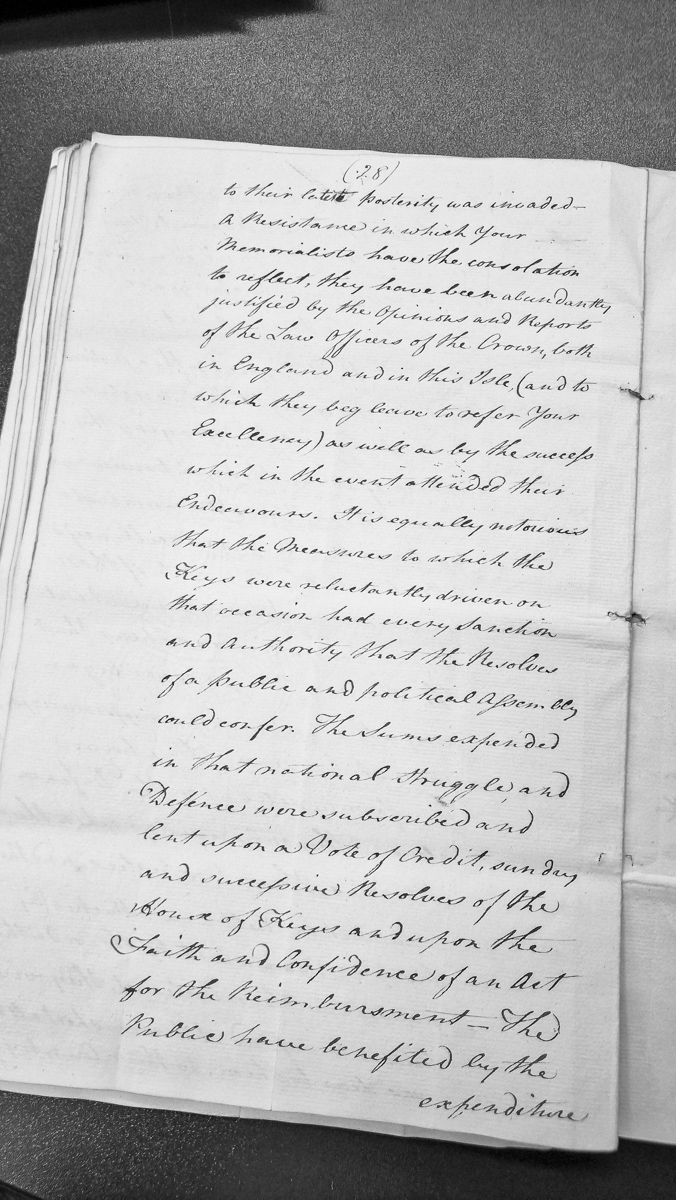 (28)
to their latest Posterity was invaded—
A Resistance in which Your
Memorialists have the consolation
to reflect, they have been abundantly
justified by the Opinions and Reports
of the Law Officers of the Crown, both
in England and in this Isle, (and to
which they beg leave to refer Your
Excellency) as well as by the success
which in the event attended their
Endeavours. It is equally notorious
that the Measures to which the
Keys were reluctantly driven on
that occasion had every Sanction
and Authority that the Resolves
of a public and political Assembly
could confer. The Sums expended
in that national struggle, and
Defence were subscribed and
lent upon a Vote of Credit, sundry
and successive Resolves of the
House of Keys and upon the
Faith and Confidence of an Act
for the Reimbursment — The
Public have benefited by the
expenditure